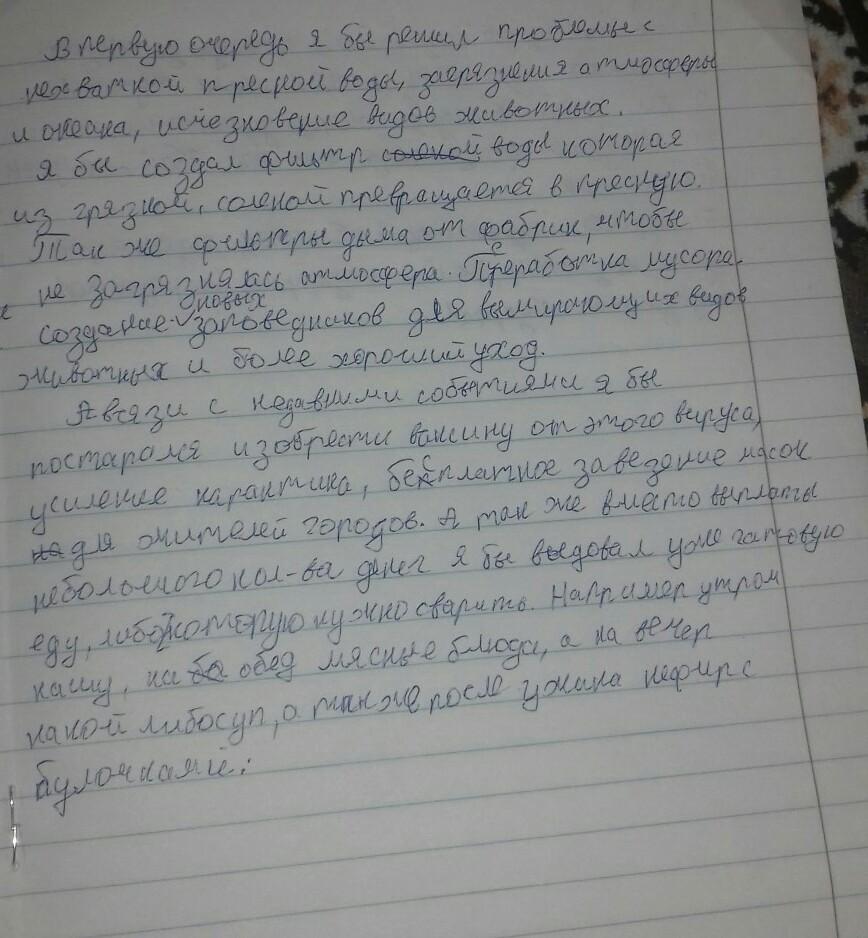 В первую очередь я бы решил проблемы с
нехваткой пресной воды, загрязнения атмосферы
и океана, исчезновение видов животных.
я бы создал фильтр соленой воды которая
из грязной, соленой превращается в пресную.
Так же фильтры дыма от фабрик, чтобы
не загрязнялась атмосфера. Переработка мусора,
создание новых заповедников для вымирающих видов
животных и более хороший уход.
А в язи с недавними событиями я бы
постарался изобрести вакцину от этого вируса,
усиление карантина, бесплатное заведение масок
на для жителей городов. А так же вместо выплаты
небольшого кол-ва денег я бы выдовал уже гатовую
еду, либо которую нужно сварить. Например утром
кашу, на бо обед мясные блюда, а на вечер
какой либо суп, а так же после ужина кефир с
булочками.